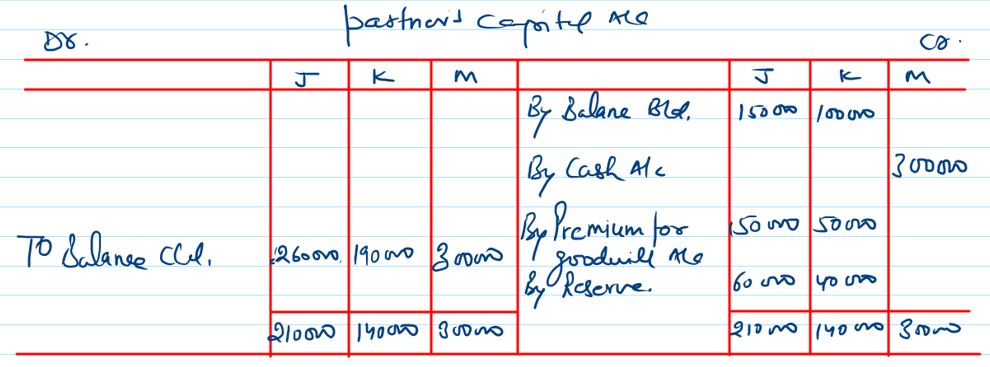 partners Capital A/c
Dr. Cr.
J K M J K M
By Balane Bld. 150000 100000
By Cash A/c 300000
By Premium for 50000 50000
To Balance C/d. 260000 190000 300000 goodwill A/c
By Reserve. 60000 40000
210000 140000 300000 210000 140000 300000